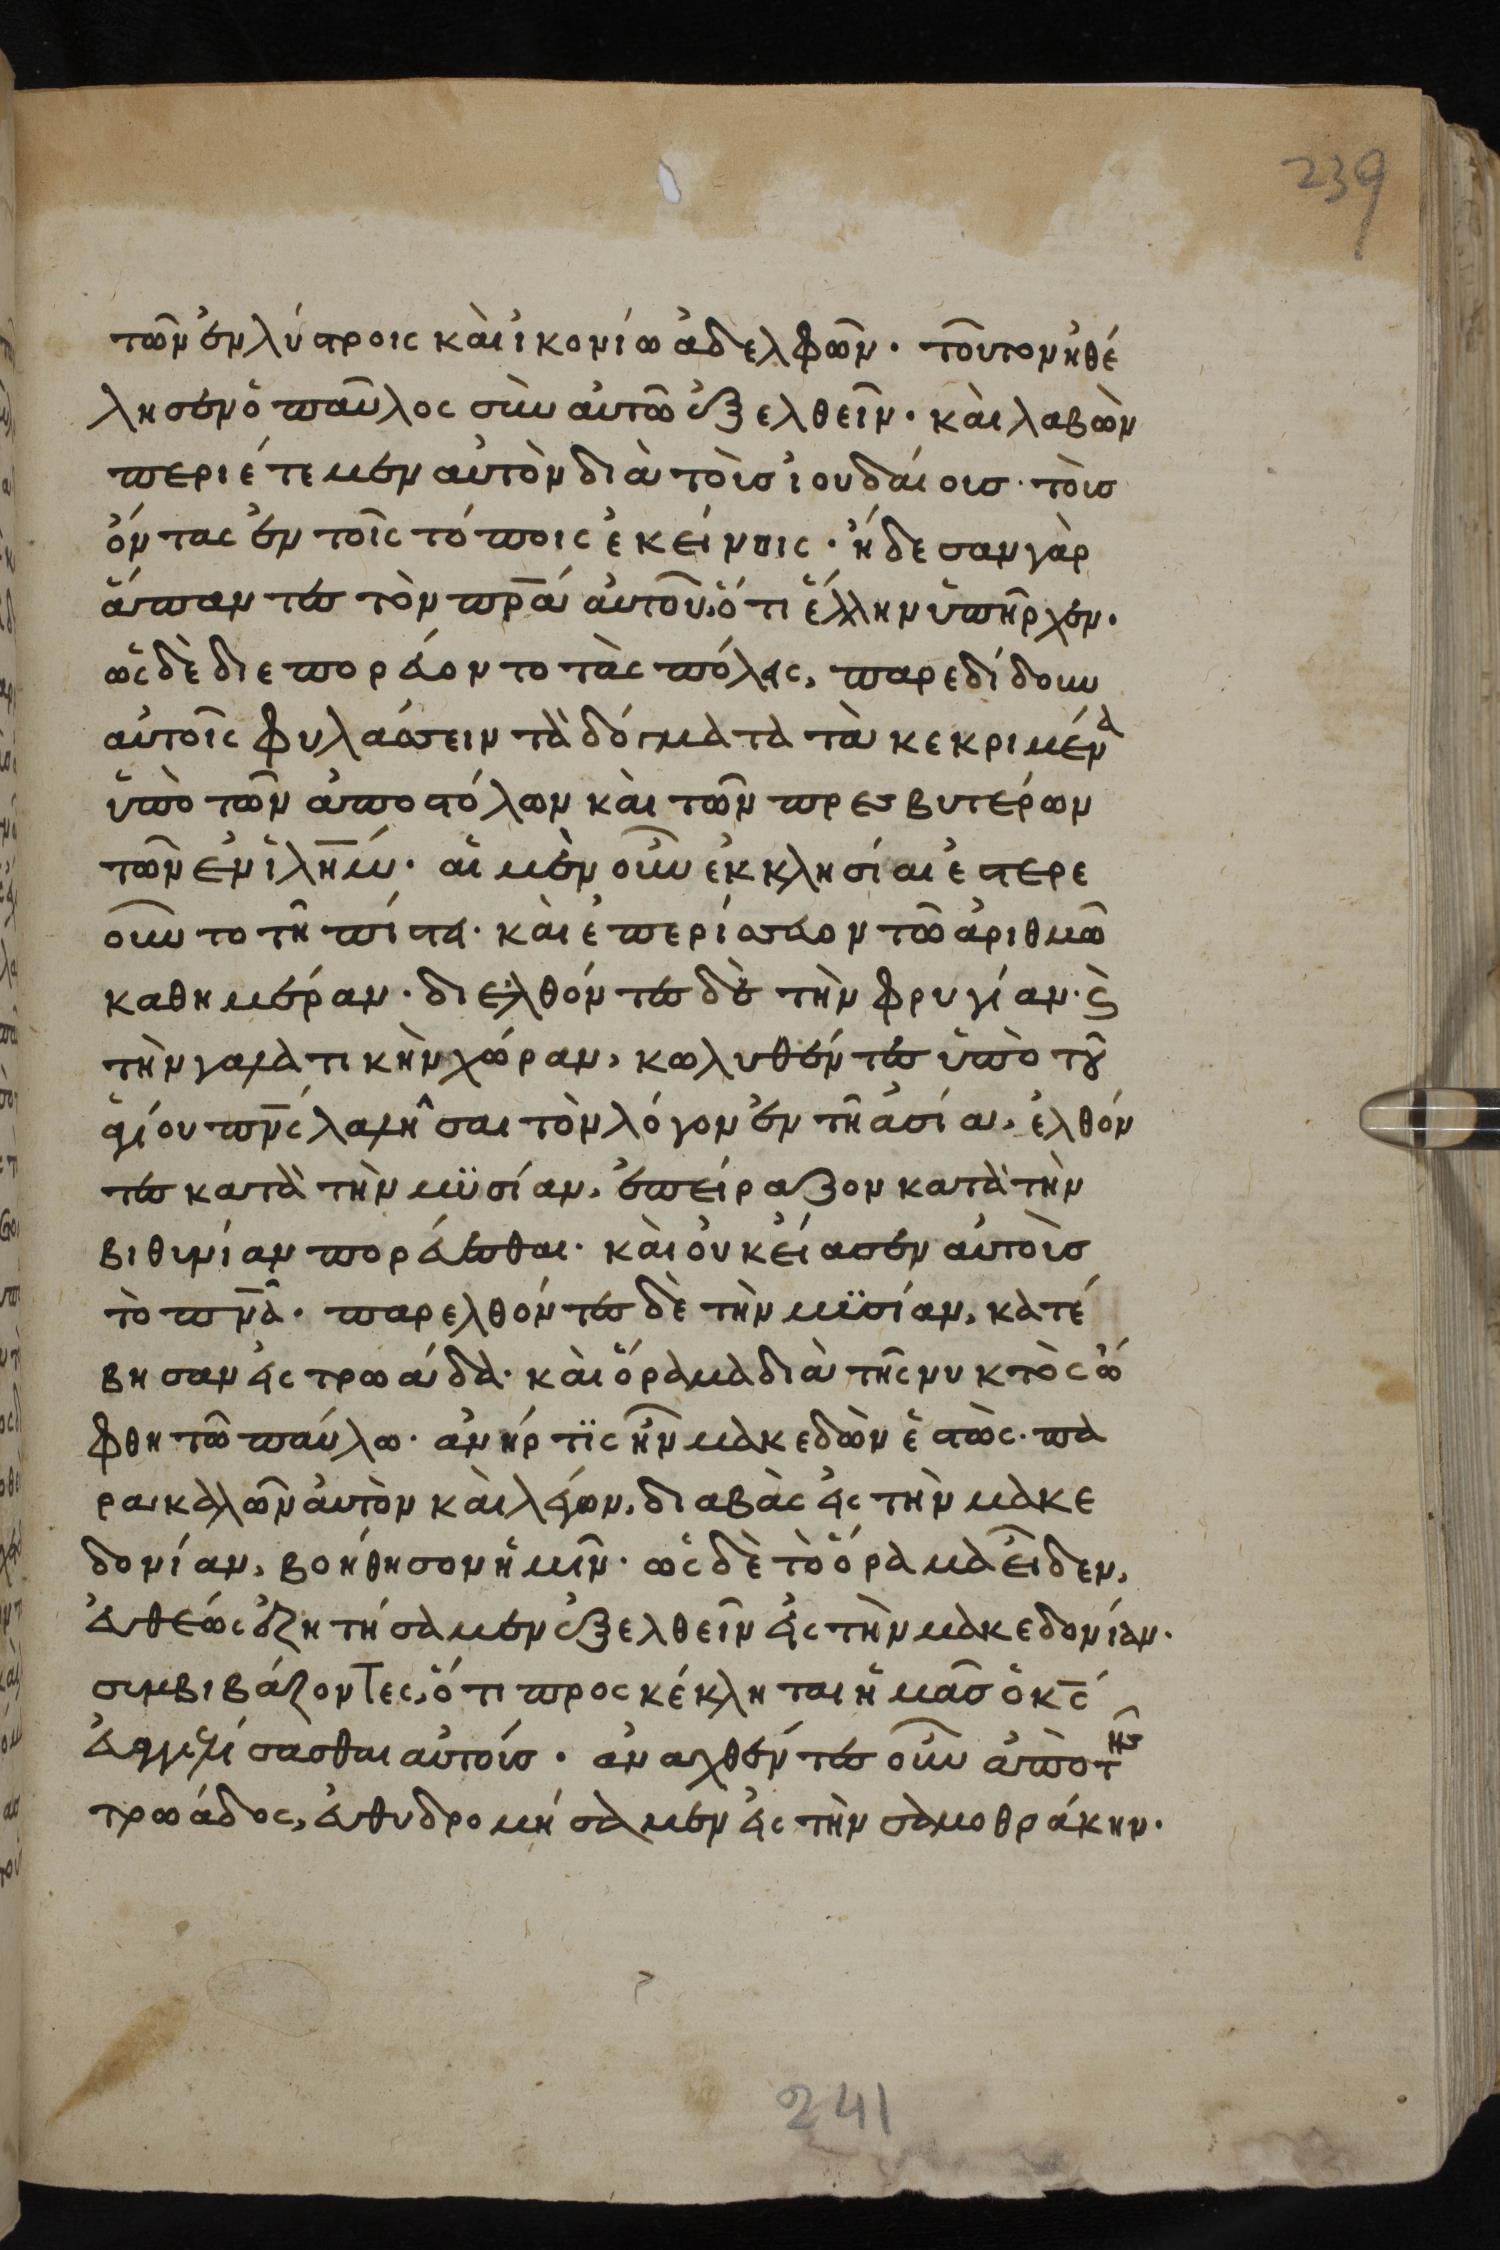 239
τῶν ἐν λύστροις καὶ ἰκονίω ἀδελφῶν · τοῦτον ἠθέ
λησεν ὁ παῦλος σὺν αὐτῶ ἐξελθεῖν · καὶ λαβὼν
περιέτεμεν αὐτὸν διὰ τοὺσ ἰουδαίουσ · τοὺσ
ὄντας ἐν τοῖς τόποις ἐκείνοις · ἤδεσαν γὰρ
ἅπαντες τὸν πρ̅α αὐτοῦ, ὅτι ἕλλην ὑπῆρχεν ·
ὡς δὲ διεπορεύοντο τὰς πόλεις, παρεδίδουν
αὐτοῖς φυλάσσειν τὰ δόγματα τὰ κεκριμένα
ὑπὸ τῶν ἀποστόλων καὶ τῶν πρεσβυτέρων
τῶν ἐν ἱλη̅μ · αἱ μὲν οὖν ἐκκλησίαι ἐστερε
οῦντο τῆ πίστει · καὶ ἐπερίσσευον τῶ ἀριθμῶ
καθημέραν · διελθόντες δὲ τὴν φρυγίαν · ϗ
τὴν γαλατικὴν χώραν, κωλυθέντες ὑπὸ τοῦ
ἁγίου πν̅ς λαλῆσαι τὸν λόγον ἐν τῆ ἀσία, ἐλθόν
τες κατὰ τὴν μϋσίαν, ἐπείραζον κατὰ τὴν
βιθυνίαν πορεύεσθαι · καὶ οὐκ εἴασεν αὐτοὺσ
τὸ πν̅α · παρελθόντες δὲ τὴν μϋσίαν, κατέ
βησαν εἰς τρωάδα · καὶ ὅραμα διὰ τῆς νυκτὸς ὤ
φθη τῶ παύλω · ἀνήρ τϊς ἦν μακεδὼν ἑστὼς · πα
ρακαλῶν αὐτὸν καὶ λέγων, διαβὰς εἰς τὴν μακε
δονίαν, βοήθησον ἡμῖν · ὡς δὲ τὸ ὅραμα εἶδεν,
εὐθέως ἐζητήσαμεν ἐξελθεῖν εἰς τὴν μακεδονίαν ·
συμβιβάζοντες, ὅτι προσκέκληται ἡμᾶσ ὁ κ̅ς
εὐαγγελίσασθαι αὐτούσ · ἀναχθέντες οὖν ἀπὸ τῆς
τρωάδος, εὐθυδρομήσαμεν εἰς τὴν σαμοθράκην ·
241